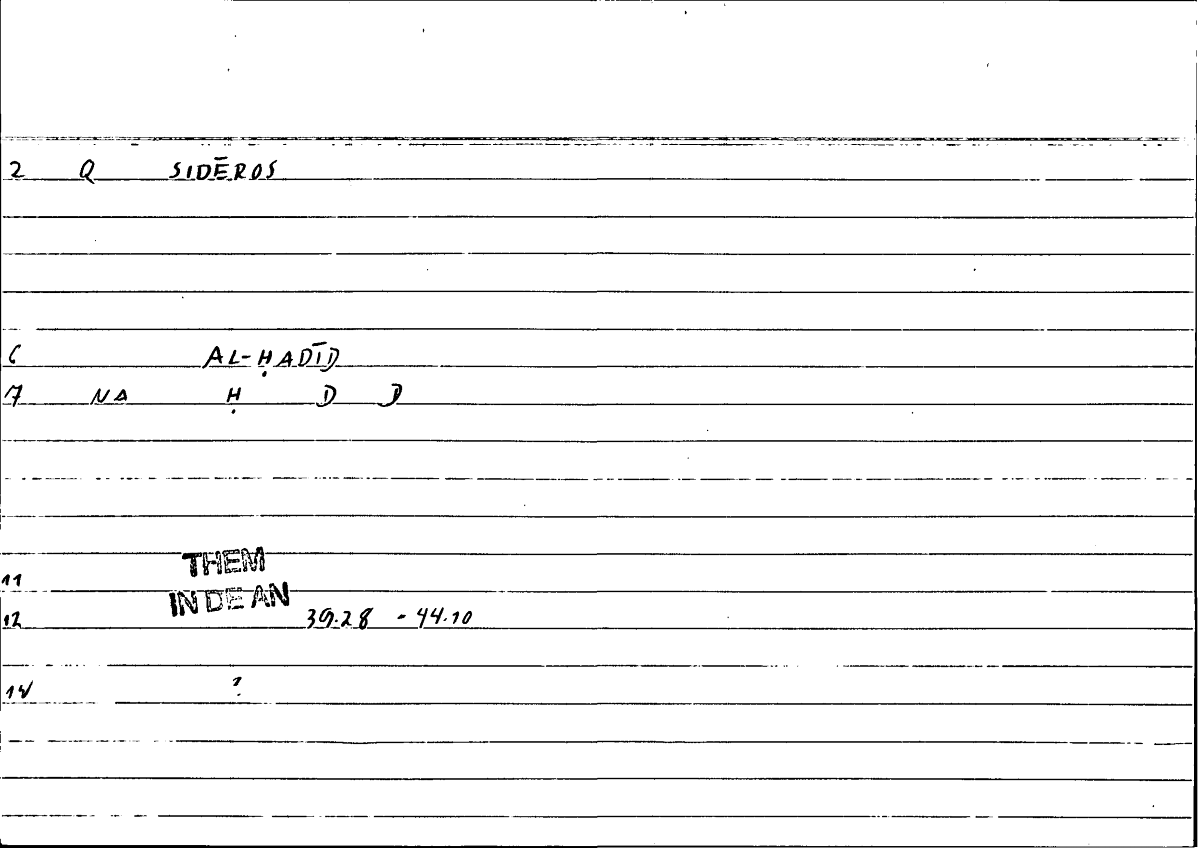 2 Q SIDĒROS
6 AL-ḤADĪD
7 NA Ḥ D D
THEM
11
IN DE AN
12 39.28 - 44.10
14 ?